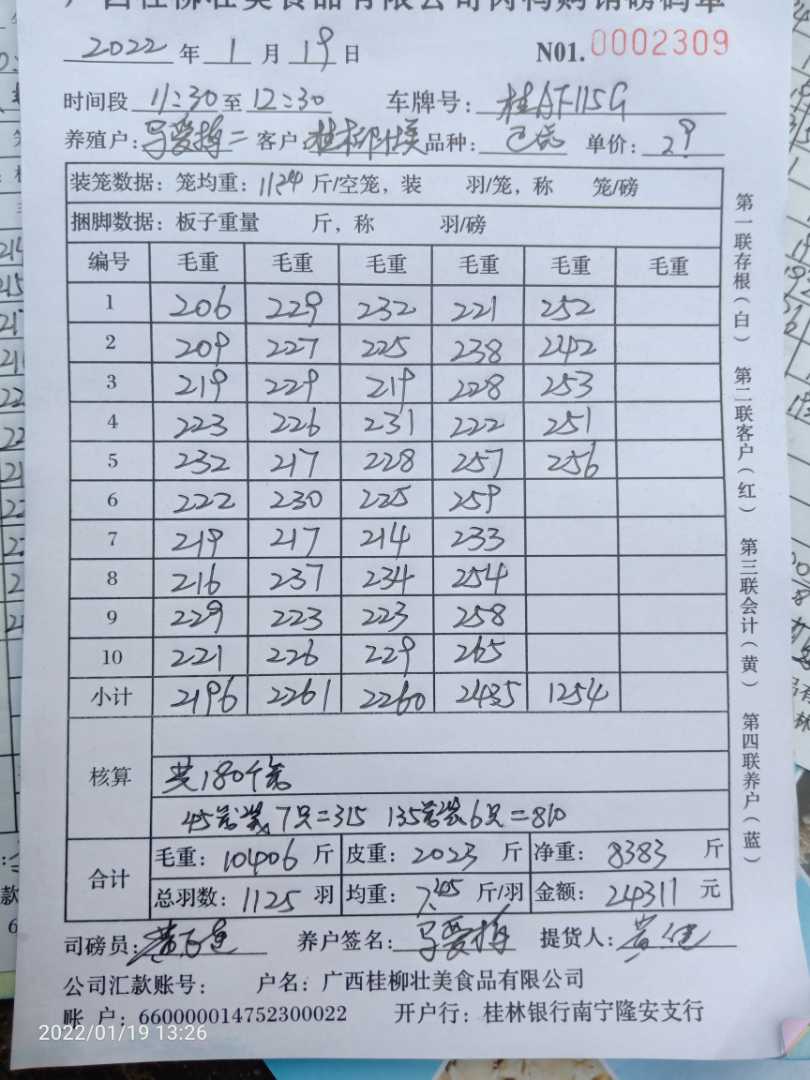 广西桂柳壮美食品有限公司肉鸭购销磅码单
2022 年 1 月 19 日 N01. 0002309
时间段 11:30 至 12:30 车牌号: 桂AF115G
养殖户: 马爱梅二 客户: 桂柳壮美 品种: 单价: 29
装笼数据: 笼均重: 1124 斤/空笼, 装 羽/笼, 称 笼/磅
捆脚数据: 板子重量 斤, 称 羽/磅
编号 毛重 毛重 毛重 毛重 毛重 毛重
1 206 229 232 221 252
2 209 227 225 238 242
3 219 229 219 228 253
4 223 226 231 222 251
5 232 217 228 257 256
6 222 230 225 259
7 219 217 214 233
8 216 237 234 254
9 229 223 223 258
10 221 226 229 265
小计 2196 2261 2260 2435 1254
核算
共180个笼
45笼装7只=315 135笼装6只=810
合计
毛重: 10406 斤 皮重: 2023 斤 净重: 8383 斤
总羽数: 1125 羽 均重: 7.45 斤/羽 金额: 24311 元
司磅员: 养户签名: 马爱梅 提货人: 黄健
公司汇款账号: 户名: 广西桂柳壮美食品有限公司
账 户: 660000014752300022 开户行: 桂林银行南宁隆安支行
第一联存根(白) 第二联客户(红) 第三联会计(黄) 第四联养户(蓝)
2022/01/19 13:26